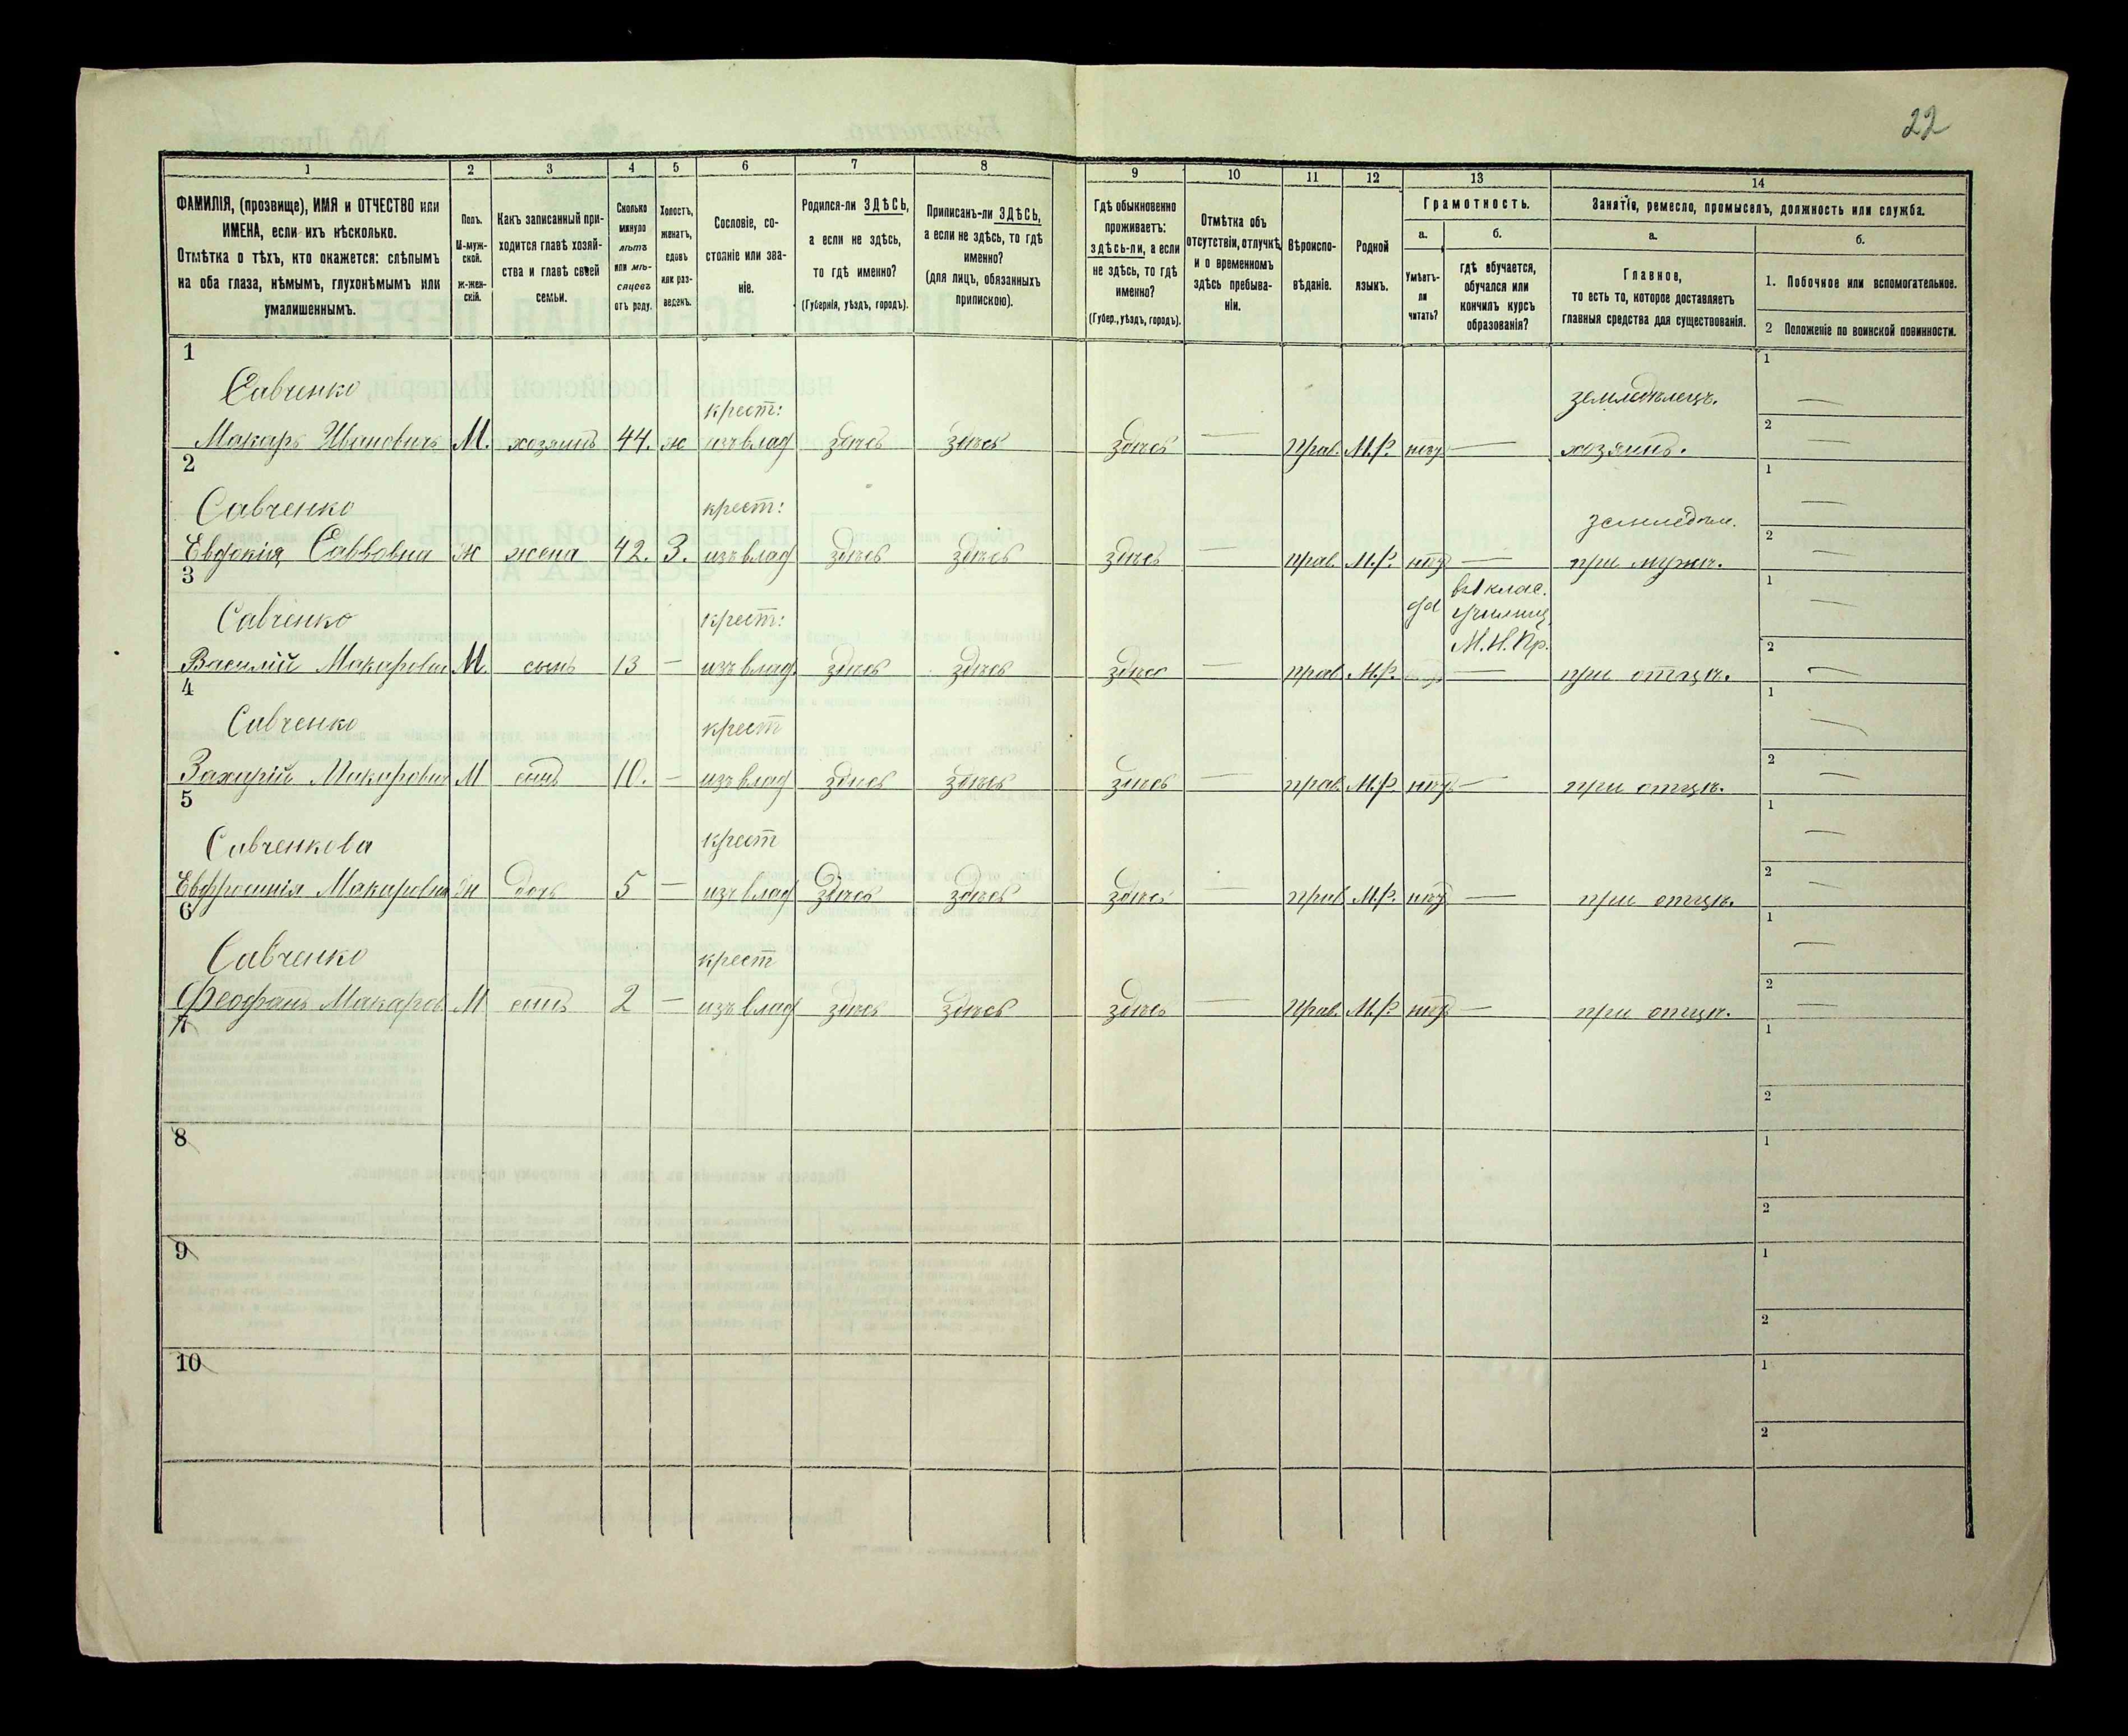 22
1
2
3
4
5
6
7
8
9
10
11
12
13
14
ФАМИЛІЯ, (прозвище), ИМЯ и ОТЧЕСТВО или
ИМЕНА, если ихъ нѣсколько.
Отмѣтка о тѣхъ, кто окажется: слѣпымъ
на оба глаза, нѣмымъ, глухонѣмымъ или
умалишеннымъ.
Полъ.
М-муж-
ской.
ж-жен-
скій.
Какъ записанный при-
ходится главѣ хозяй-
ства и главѣ своей
семьи.
Сколько
минуло
лѣтъ
или мѣ-
сяцевъ
отъ роду.
Холостъ,
женатъ,
вдовъ
или раз-
веденъ.
Сословіе, со-
стояніе или зва-
ніе.
Родился-ли ЗДѢСЬ,
а если не здѣсь,
то гдѣ именно?
(Губернія, уѣздъ, городъ).
Приписанъ-ли ЗДѢСЬ,
а если не здѣсь, то гдѣ
именно?
(для лицъ, обязанныхъ
припискою).
Гдѣ обыкновенно
проживаетъ:
здѣсь-ли, а если
не здѣсь, то гдѣ
именно?
(Губер., уѣздъ, городъ).
Отмѣтка объ
отсутствіи, отлучкѣ
и о временномъ
здѣсь пребыва-
ніи.
Вѣроиспо-
вѣданіе.
Родной
языкъ.
Грамотность.
а.
Умѣетъ-
ли
читать?
б.
гдѣ обучается,
обучался или
кончилъ курсъ
образованія?
Занятіе, ремесло, промыселъ, должность или служба.
а.
Главное,
то есть то, которое доставляетъ
главныя средства для существованія.
б.
1. Побочное или вспомогательное.
2 Положеніе по воинской повинности.
1
Савченко крест: земледѣлецъ. 1 —
Макаръ Ивановичъ М. хозяинъ 44. ж изъ влад здѣсь здѣсь здѣсь — Прав. М.Р. нѣтъ — хозяинъ. 2 —
2
Савченко крест: земледѣл. 1 —
Евдокія Саввовна ж жена 42. З. изъ влад здѣсь здѣсь здѣсь — прав. М.Р. нѣтъ — при мужѣ. 2 —
3
Савченко крест: да въ 1 клас. училищ. М.Н.Пр. 1 —
Василій Макарович М. сынъ 13 — изъ влад. здѣсь здѣсь здѣсь — прав М.Р. — при отцѣ. 2 —
4
Савченко крест 1 —
Захарій Макарович М сынъ 10. — изъ влад здѣсь здѣсь здѣсь — прав. М.Р. нѣтъ — при отцѣ. 2 —
5
Савченкова крест 1 —
Евфросинія Макаровна ж дочь 5 — изъ влад здѣсь здѣсь здѣсь — прав М.Р. нѣтъ — при отцѣ. 2 —
6
Савченко крест 1 —
Феофанъ Макаров М сынъ 2 — изъ влад здѣсь здѣсь здѣсь — Прав. М.Р нѣтъ — при отцѣ. 2 —
7 1
2
8 1
2
9 1
2
10 1
2